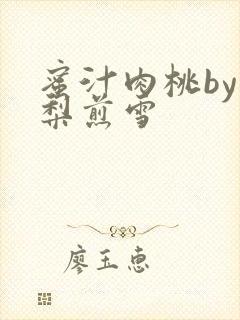 蜜汁肉桃by
梨煎雪
廖玉惠